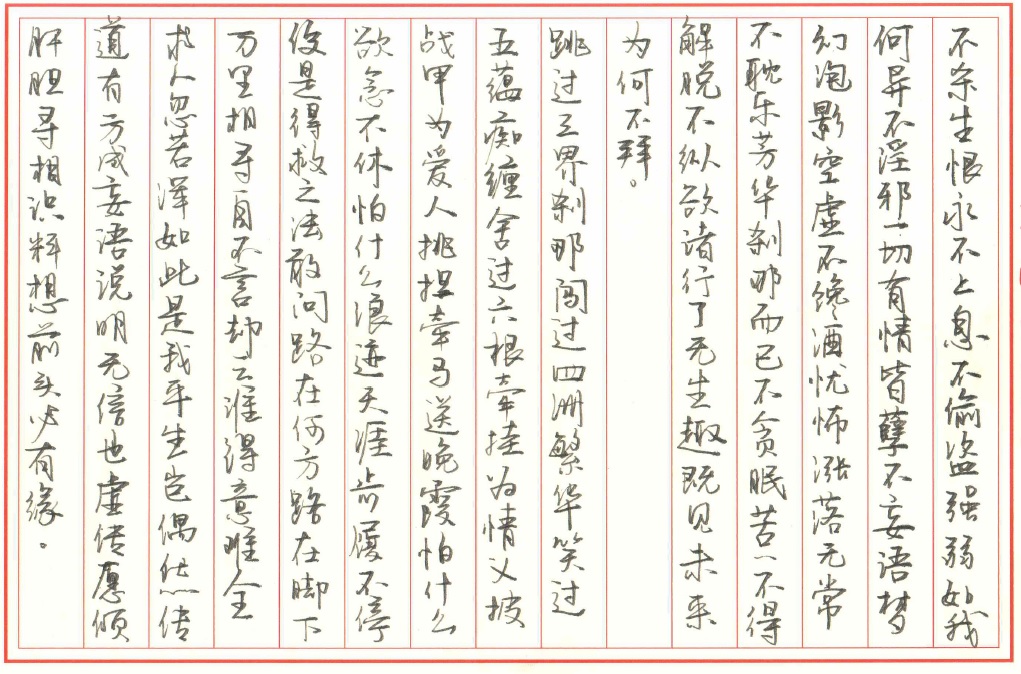 不杀生恨永不上息不偷盗强弱如我
何异不淫邪一切有情皆孽不妄语梦
幻泡影空虚不馋酒忧怖涨落无常
不耽乐芳华刹那而已不贪眠苦一不得
解脱不纵欲诸行了无生趣既见未来
为何不拜。
跳过三界刹那闯过四洲繁华笑过
五蕴痴缠舍过六根牵挂为情义披
战甲为爱人挑担牵马送晚霞怕什么
欲念不休怕什么浪迹天涯步履不停
便是得救之法敢问路在何方路在脚下
万里相寻自不言却云谁得意难全
求人忽若浑如此是我平生岂偶然传
道有方成妄语说明无倍也虚传愿倾
肝胆寻相识料想前头必有缘。